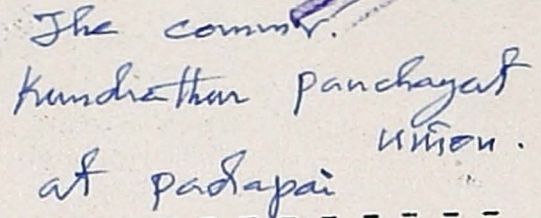 The commr.
Kundrathur panchayat
union.
at padapai